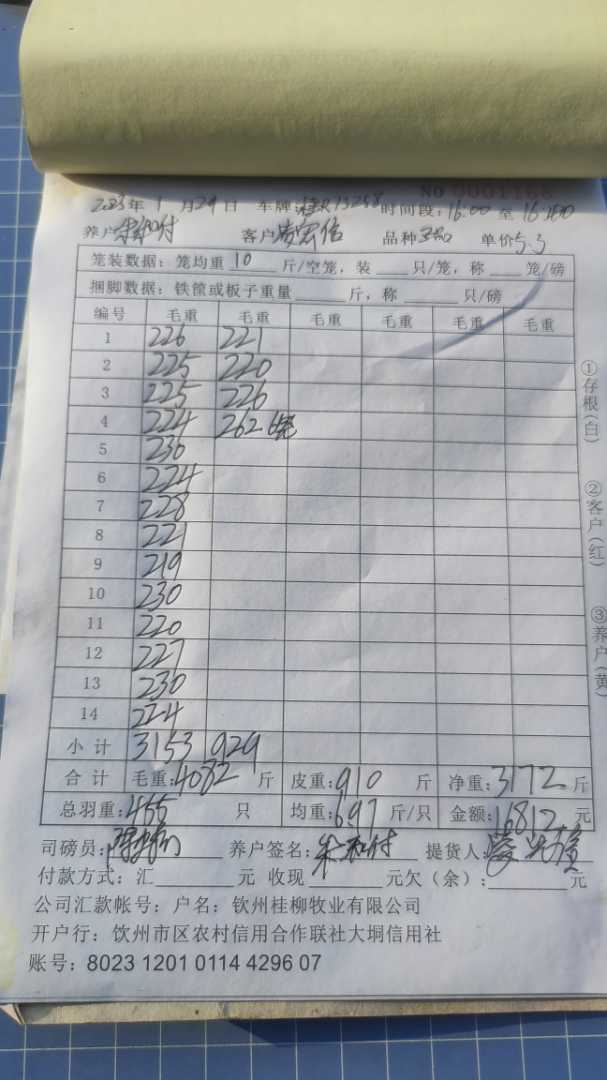 NO 0001168
2023年 1 月29日 车牌 13258 时间段:16:00 至 16
养户 客户 品种 单价5.3
笼装数据:笼均重 10 斤/空笼,装 只/笼,称 笼/磅
捆脚数据:铁筐或板子重量 斤,称 只/磅
编号 毛重 毛重 毛重 毛重 毛重 毛重
1 226 221
2 225 220
3 225 226
4 224 262
5 236
6 224
7 228
8 221
9 219
10 230
11 220
12 227
13 230
14 224
小计 3153 929
合计 毛重:4082 斤 皮重:910 斤 净重:3172 斤
总羽重:455 只 均重:697 斤/只 金额:16812 元
司磅员: 养户签名:朱和付 提货人:
付款方式:汇 元 收现 元欠(余): 元
公司汇款帐号:户名:钦州桂柳牧业有限公司
开户行:饮州市区农村信用合作联社大垌信用社
账号:8023 1201 0114 4296 07
①存根(白)
②客户(红)
③养户(黄)